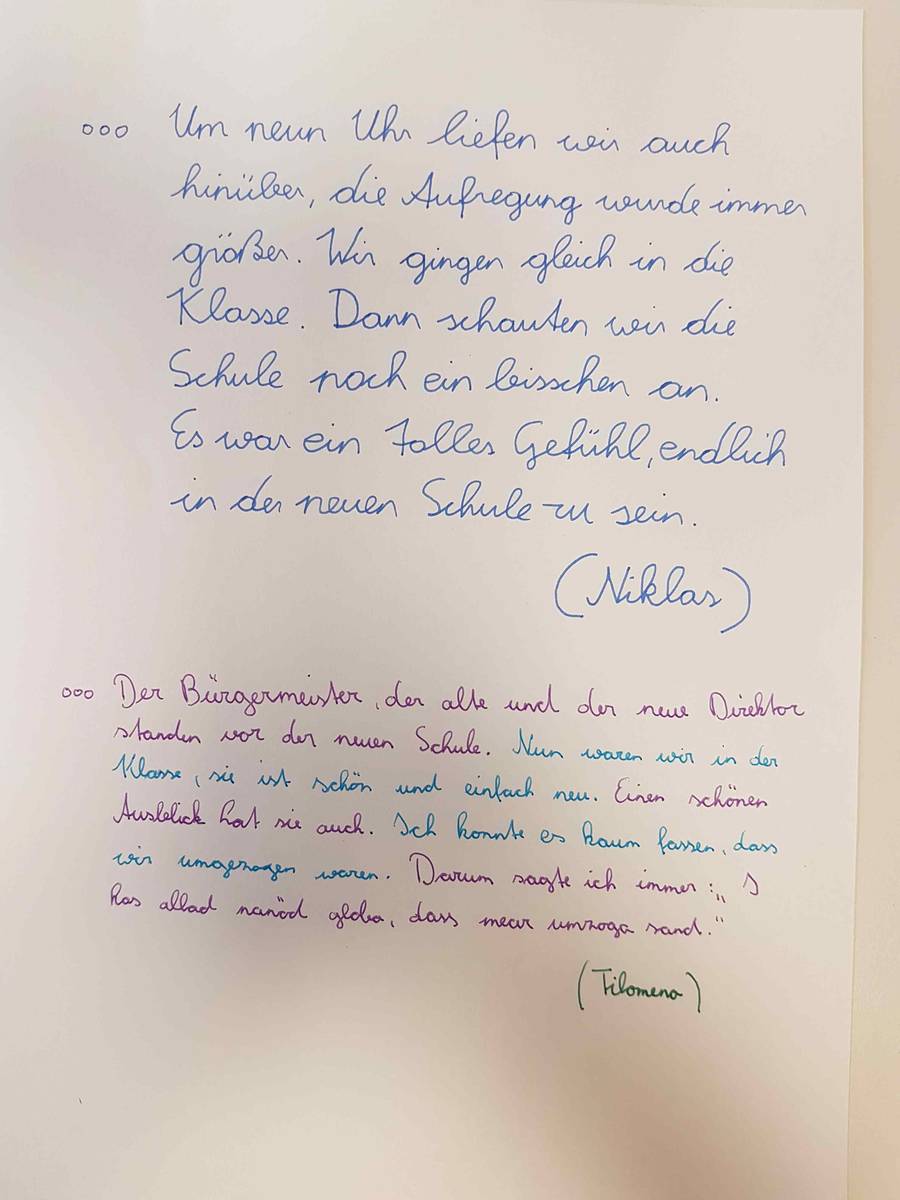 ooo Um neun Uhr liefen wir auch
hinüber, die Aufregung wurde immer
größer. Wir gingen gleich in die
Klasse. Dann schauten wir die
Schule noch ein bisschen an.
Es war ein tolles Gefühl, endlich
in der neuen Schule zu sein.
(Niklas)
ooo Der Bürgermeister, der alte und der neue Direktor
standen vor der neuen Schule. Nun waren wir in der
Klasse, sie ist schön und einfach neu. Einen schönen
Ausblick hat sie auch. Ich konnte es kaum fassen, dass
wir umgezogen waren. Darum sagte ich immer: „I
kas allad nanöd globa, dass mear umzoga sand.“
(Filomena)